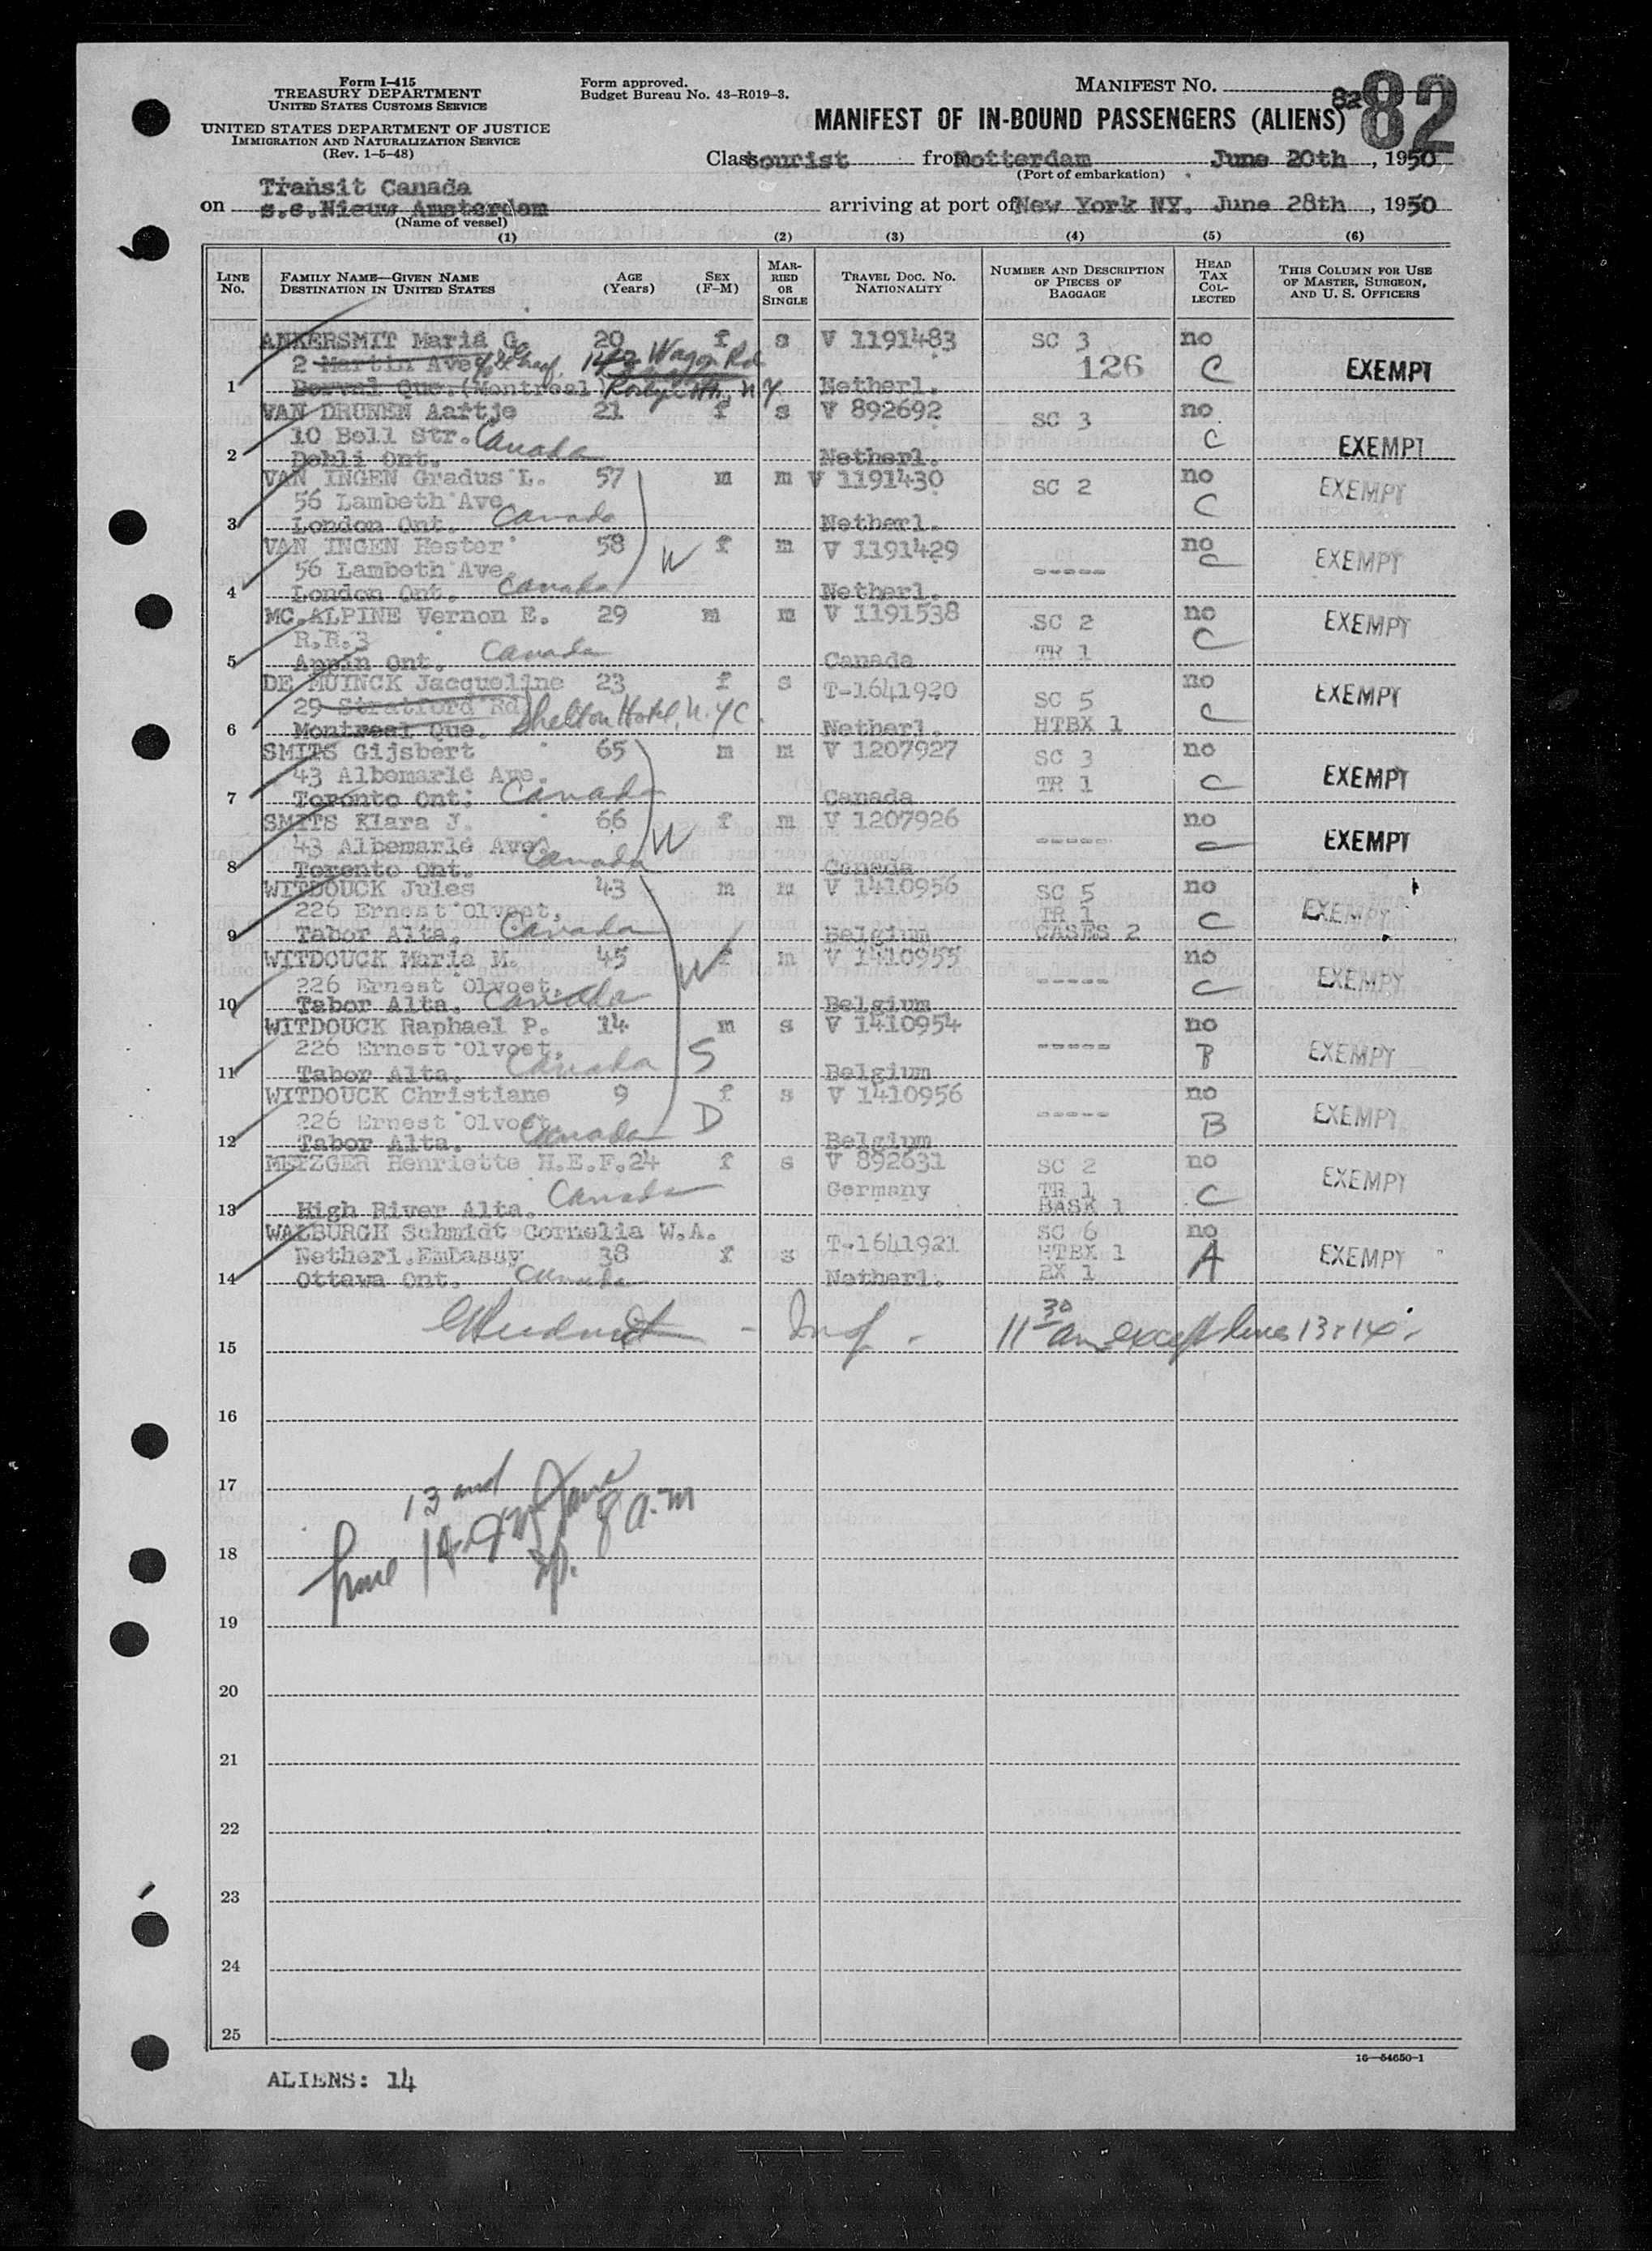 Form I-415
TREASURY DEPARTMENT
UNITED STATES CUSTOMS SERVICE
UNITED STATES DEPARTMENT OF JUSTICE
IMMIGRATION AND NATURALIZATION SERVICE
(Rev. 1-5-48)
Form approved.
Budget Bureau No. 43-R019-3.
MANIFEST NO. 82
82
MANIFEST OF IN-BOUND PASSENGERS (ALIENS)
Class tourist from Rotterdam June 20th, 1950
(Port of embarkation)
Transit Canada
on s.s.Nieuw Amsterdam arriving at port of New York NY. June 28th, 1950
(Name of vessel)
(1) (2) (3) (4) (5) (6)
LINE NO. FAMILY NAME—GIVEN NAME DESTINATION IN UNITED STATES AGE (YEARS) SEX (F-M) MARRIED OR SINGLE TRAVEL DOC. NO. NATIONALITY NUMBER AND DESCRIPTION OF PIECES OF BAGGAGE HEAD TAX COLLECTED THIS COLUMN FOR USE OF MASTER, SURGEON, AND U. S. OFFICERS
ANKERSMIT Maria G. 20 f s V 1191483 SC 3 no
2 Martin Ave Wagon Rd 126 C EXEMPT
1 Dorval Que.(Montreal) N Y Netherl.
VAN DRUNEN Aartje 21 f s V 892692 SC 3 no
10 Bell Str. Canada C EXEMPT
2 Dehli Ont. Netherl.
VAN INGEN Gradus L. 57 m m V 1191430 SC 2 no EXEMPT
56 Lambeth Ave. C
3 London Ont. Canada Netherl.
VAN INGEN Hester 58 f m V 1191429 no
56 Lambeth Ave. W ----- C EXEMPT
4 London Ont. Canada Netherl.
MC.ALPINE Vernon E. 29 m m V 1191538 SC 2 no EXEMPT
R.R.3 C
5 Appin Ont. Canada Canada TR 1
DE MUINCK Jacqueline 23 f s T-1641920 SC 5 no EXEMPT
29 Stratford Rd Shelton Hotel, N.Y.C. C
6 Montreal Que. Netherl. HTBX 1
SMITS Gijsbert 65 m m V 1207927 SC 3 no
43 Albemarle Ave. TR 1 C EXEMPT
7 Toronto Ont. Canada Canada
SMITS Klara J. 66 f m V 1207926 no
43 Albemarle Ave. W ----- C EXEMPT
8 Toronto Ont. Canada Canada
WITDOUCK Jules 43 m m V 1410956 SC 5 no
226 Ernest Olvoet, TR 1 C EXEMPT
9 Tabor Alta. Canada Belgium CASES 2
WITDOUCK Maria M. 45 f m V 1410955 no
226 Ernest Olvoet, W ----- C EXEMPT
10 Tabor Alta. Canada Belgium
WITDOUCK Raphael P. 14 m s V 1410954 no
226 Ernest Olvoet, S ----- B EXEMPT
11 Tabor Alta. Canada Belgium
WITDOUCK Christiane 9 f s V 1410956 no
226 Ernest Olvoet, D ----- B EXEMPT
12 Tabor Alta. Canada Belgium
METZGER Henriette H.E.F. 24 f s V 892631 SC 2 no
Germany TR 1 C EXEMPT
13 High River Alta. Canada BASK 1
WALBURGH Schmidt Cornelia W.A. SC 6 no
Netherl.Embassy 38 f s T-1641921 HTBX 1 A EXEMPT
14 Ottawa Ont. Canada Netherl. BX 1
15 Insp. 11 30 am except lines 13 & 14.
16
17
13 and
line 14 8 a.m
18
19
20
21
22
23
24
25
16—54650-1
ALIENS: 14